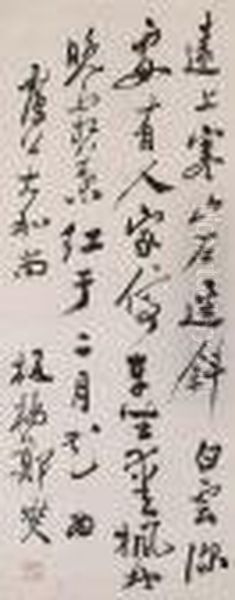 遠上寒山石逕斜 白雲深
處有人家停車坐愛楓林
晚霜葉紅于二月花
大和尚 板橋鄭燮